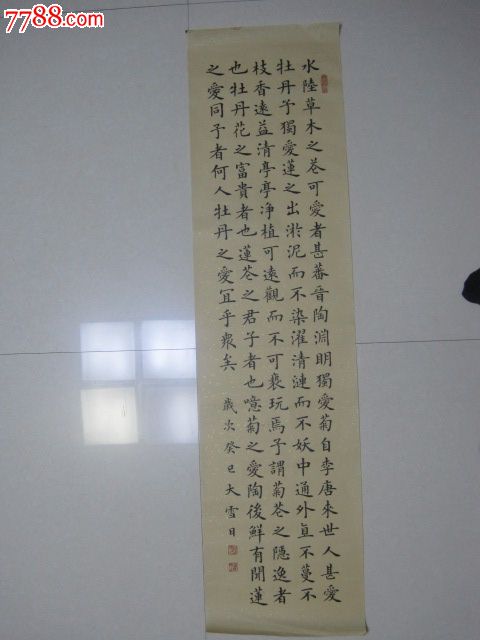 7788.com
水陸草木之花可愛者甚蕃晉陶淵明獨愛菊自李唐來世人甚愛
牡丹予獨愛蓮之出淤泥而不染濯清漣而不妖中通外直不蔓不
枝香遠益清亭亭净植可遠觀而不可褻玩焉予謂菊花之隱逸者
也牡丹花之富貴者也蓮花之君子者也噫菊之愛陶後鮮有聞蓮
之愛同予者何人牡丹之愛宜乎衆矣
歲次癸巳大雪日